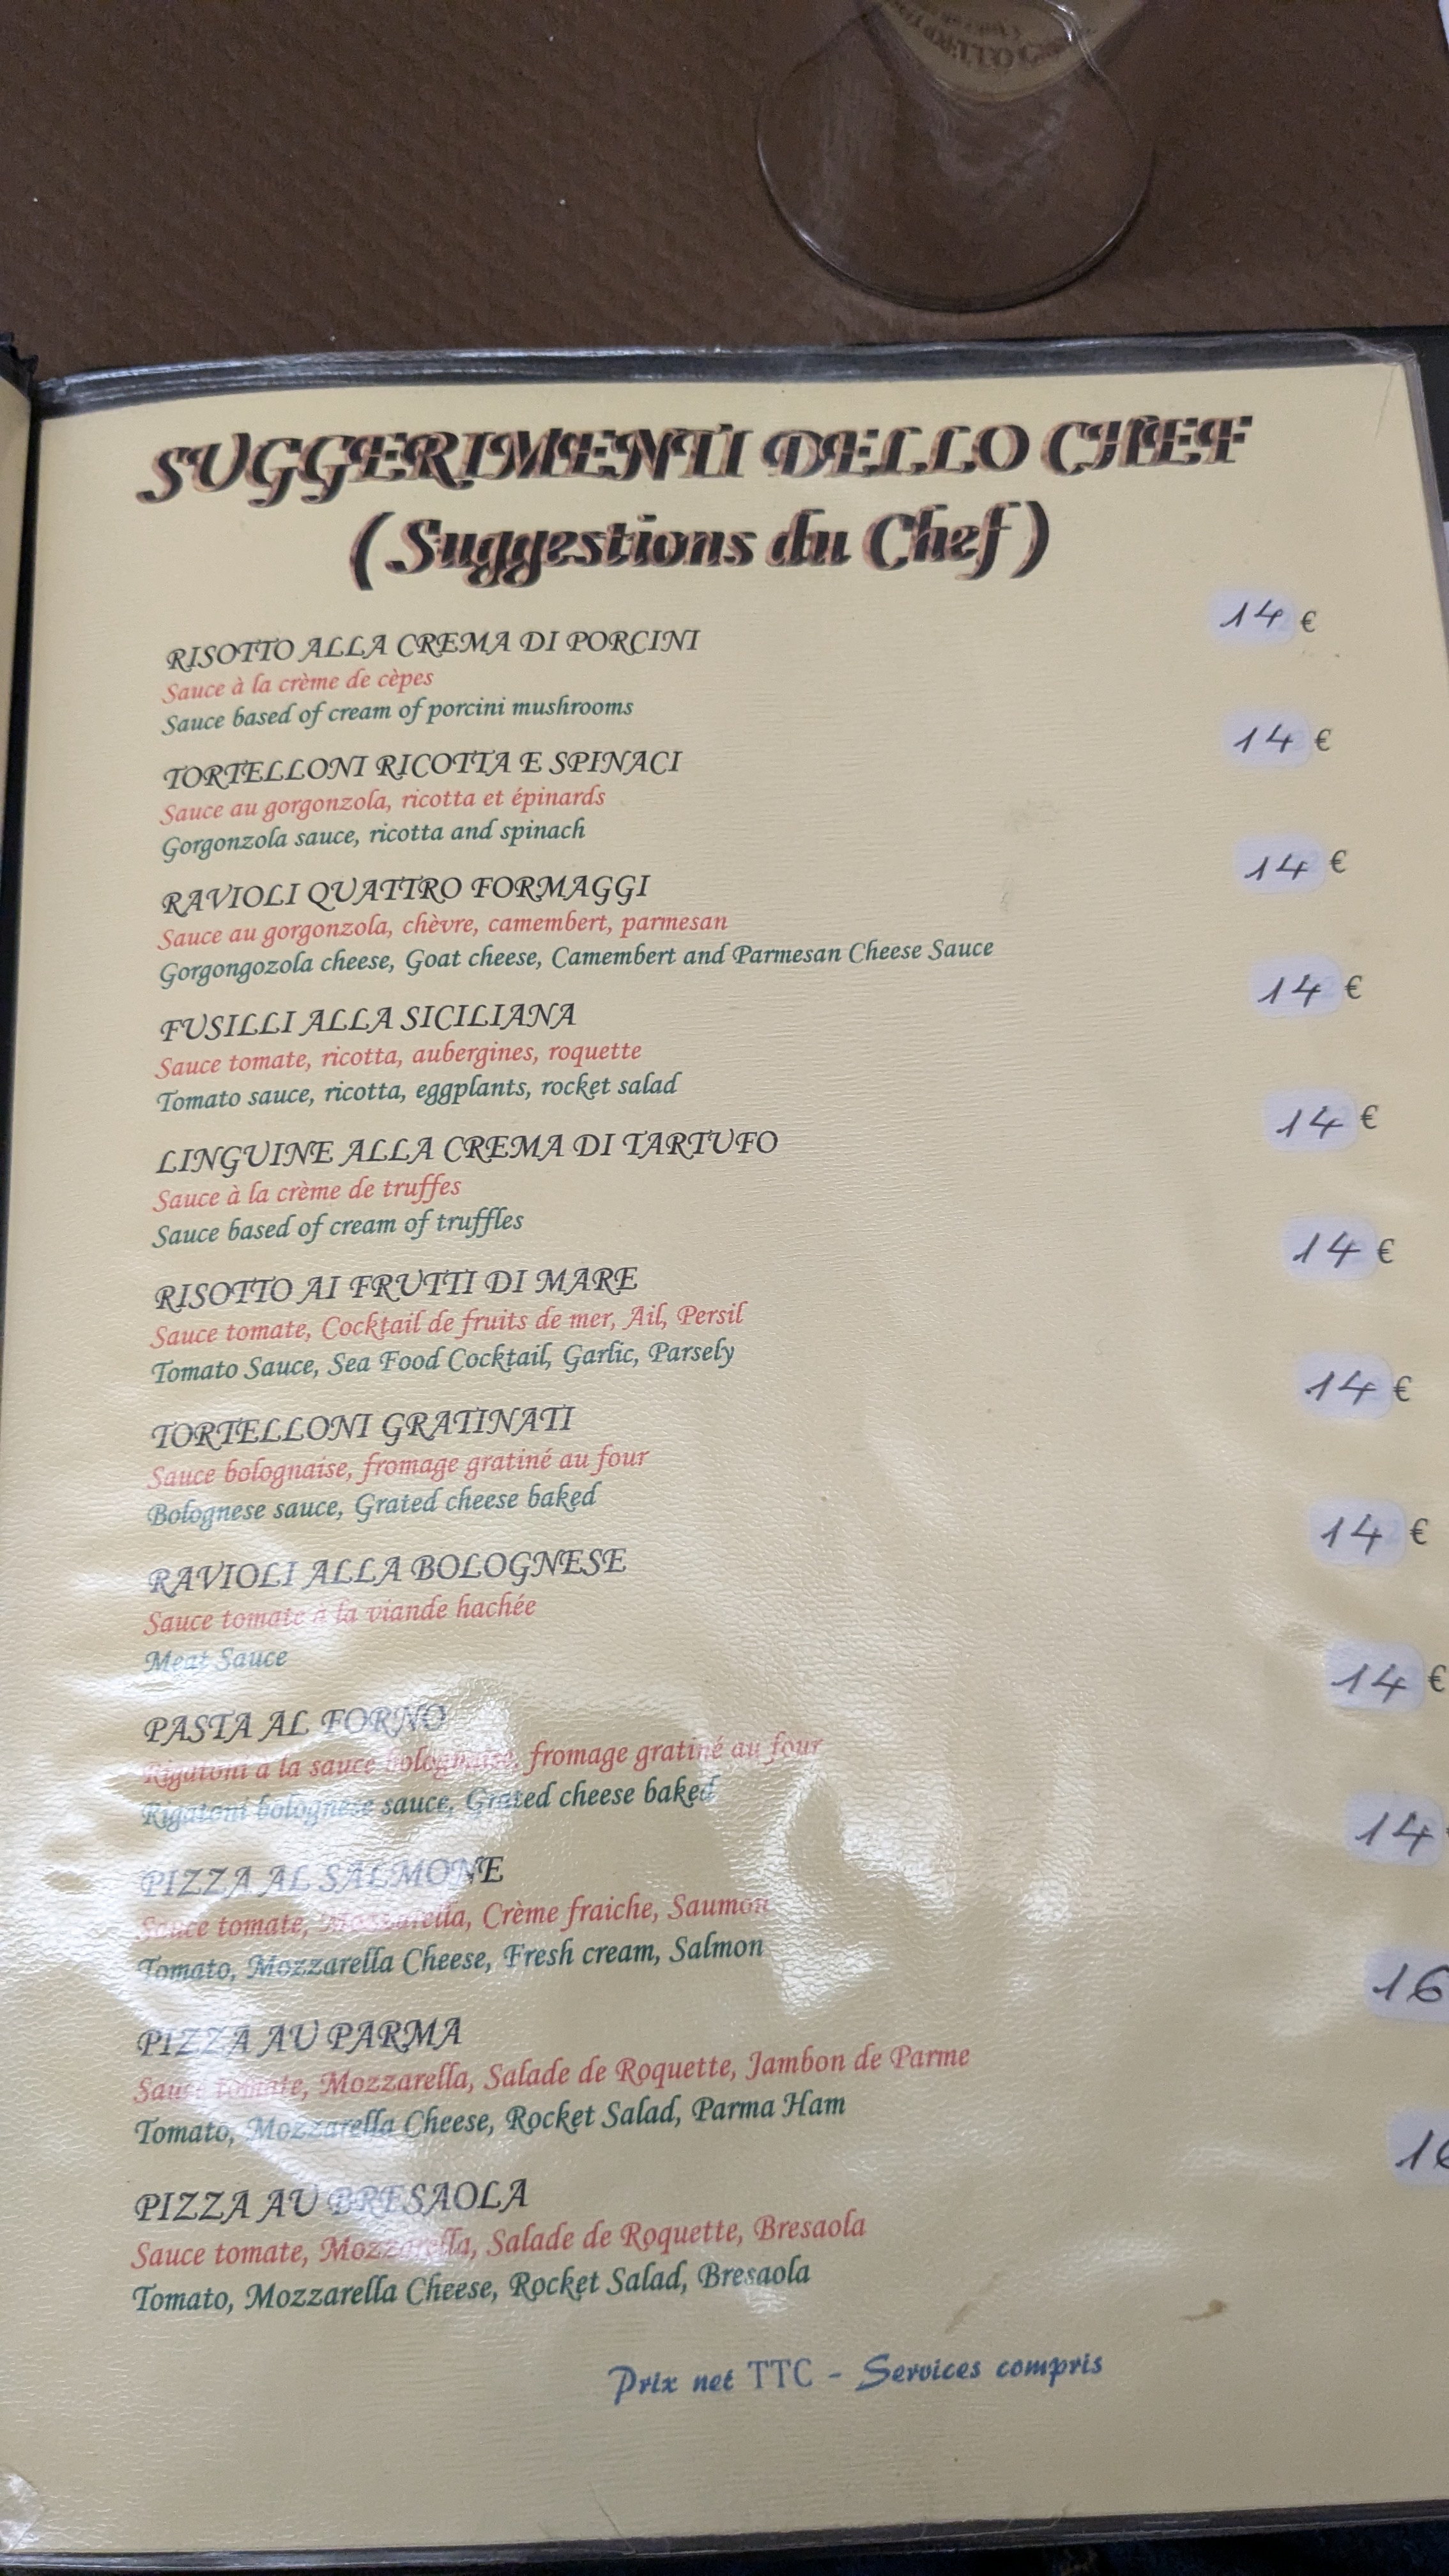 SUGGERIMENTI DELLO CHEF
(Suggestions du Chef)
RISOTTO ALLA CREMA DI PORCINI 14 €
Sauce à la crème de cèpes
Sauce based of cream of porcini mushrooms
TORTELLONI RICOTTA E SPINACI 14 €
Sauce au gorgonzola, ricotta et épinards
Gorgonzola sauce, ricotta and spinach
RAVIOLI QUATTRO FORMAGGI 14 €
Sauce au gorgonzola, chèvre, camembert, parmesan
Gorgongozola cheese, Goat cheese, Camembert and Parmesan Cheese Sauce
FUSILLI ALLA SICILIANA 14 €
Sauce tomate, ricotta, aubergines, roquette
Tomato sauce, ricotta, eggplants, rocket salad
LINGUINE ALLA CREMA DI TARTUFO 14 €
Sauce à la crème de truffes
Sauce based of cream of truffles
RISOTTO AI FRUTTI DI MARE 14 €
Sauce tomate, Cocktail de fruits de mer, Ail, Persil
Tomato Sauce, Sea Food Cocktail, Garlic, Parsely
TORTELLONI GRATINATI 14 €
Sauce bolognaise, fromage gratiné au four
Bolognese sauce, Grated cheese baked
RAVIOLI ALLA BOLOGNESE 14 €
Sauce tomate à la viande hachée
Meat Sauce
PASTA AL FORNO 14 €
Rigatoni à la sauce bolognaise, fromage gratiné au four
Rigatoni bolognese sauce, Grated cheese baked
PIZZA AL SALMONE 14
Sauce tomate, Mozzarella, Crème fraiche, Saumon
Tomato, Mozzarella Cheese, Fresh cream, Salmon
PIZZA AU PARMA 16
Sauce tomate, Mozzarella, Salade de Roquette, Jambon de Parme
Tomato, Mozzarella Cheese, Rocket Salad, Parma Ham
PIZZA AU BRESAOLA
Sauce tomate, Mozzarella, Salade de Roquette, Bresaola
Tomato, Mozzarella Cheese, Rocket Salad, Bresaola
Prix net TTC - Services compris